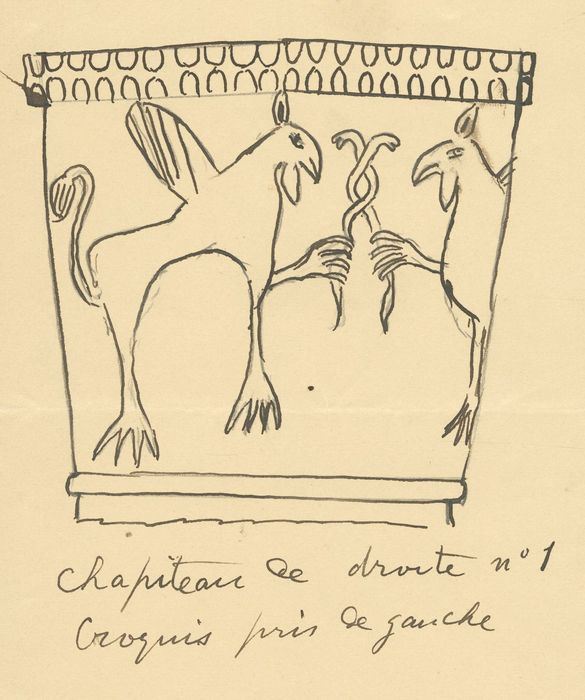 chapiteau de droite n° 1
Croquis pris de gauche